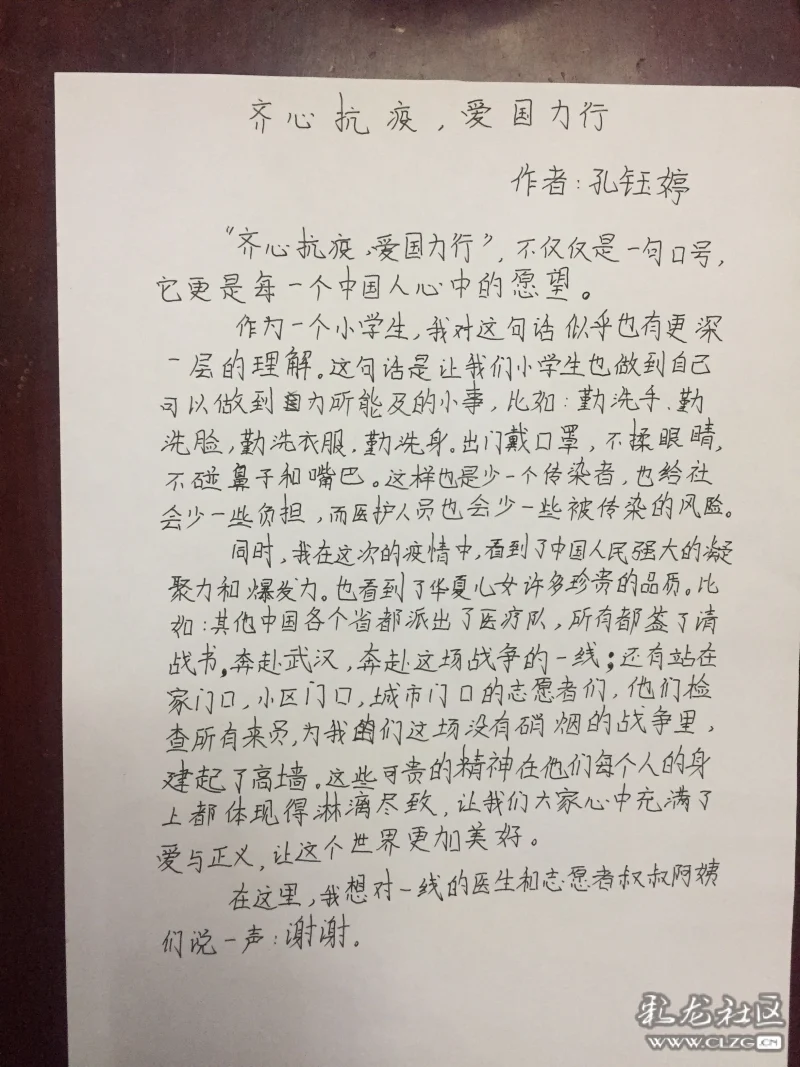 齐心抗疫，爱国力行
作者：孔钰婷
“齐心抗疫，爱国力行”，不仅仅是一句口号，
它更是每一个中国人心中的愿望。
作为一个小学生，我对这句话似乎也有更深
一层的理解。这句话是让我们小学生也做到自己
可以做到自力所能及的小事，比如：勤洗手、勤
洗脸，勤洗衣服，勤洗身。出门戴口罩，不揉眼睛，
不碰鼻子和嘴巴。这样也是少一个传染者，也给社
会少一些负担，而医护人员也会少一些被传染的风险。
同时，我在这次的疫情中，看到了中国人民强大的凝
聚力和爆发力。也看到了华夏儿女许多珍贵的品质。比
如：其他中国各个省都派出了医疗队，所有都签了请
战书，奔赴武汉，奔赴这场战争的一线；还有站在
家门口，小区门口，城市门口的志愿者们，他们检
查所有来员，为我们这场没有硝烟的战争里，
建起了高墙。这些可贵的精神在他们每个人的身
上都体现得淋漓尽致，让我们大家心中充满了
爱与正义，让这个世界更加美好。
在这里，我想对一线的医生和志愿者叔叔阿姨
们说一声：谢谢。
彩龙社区
WWW.CLZG.CN